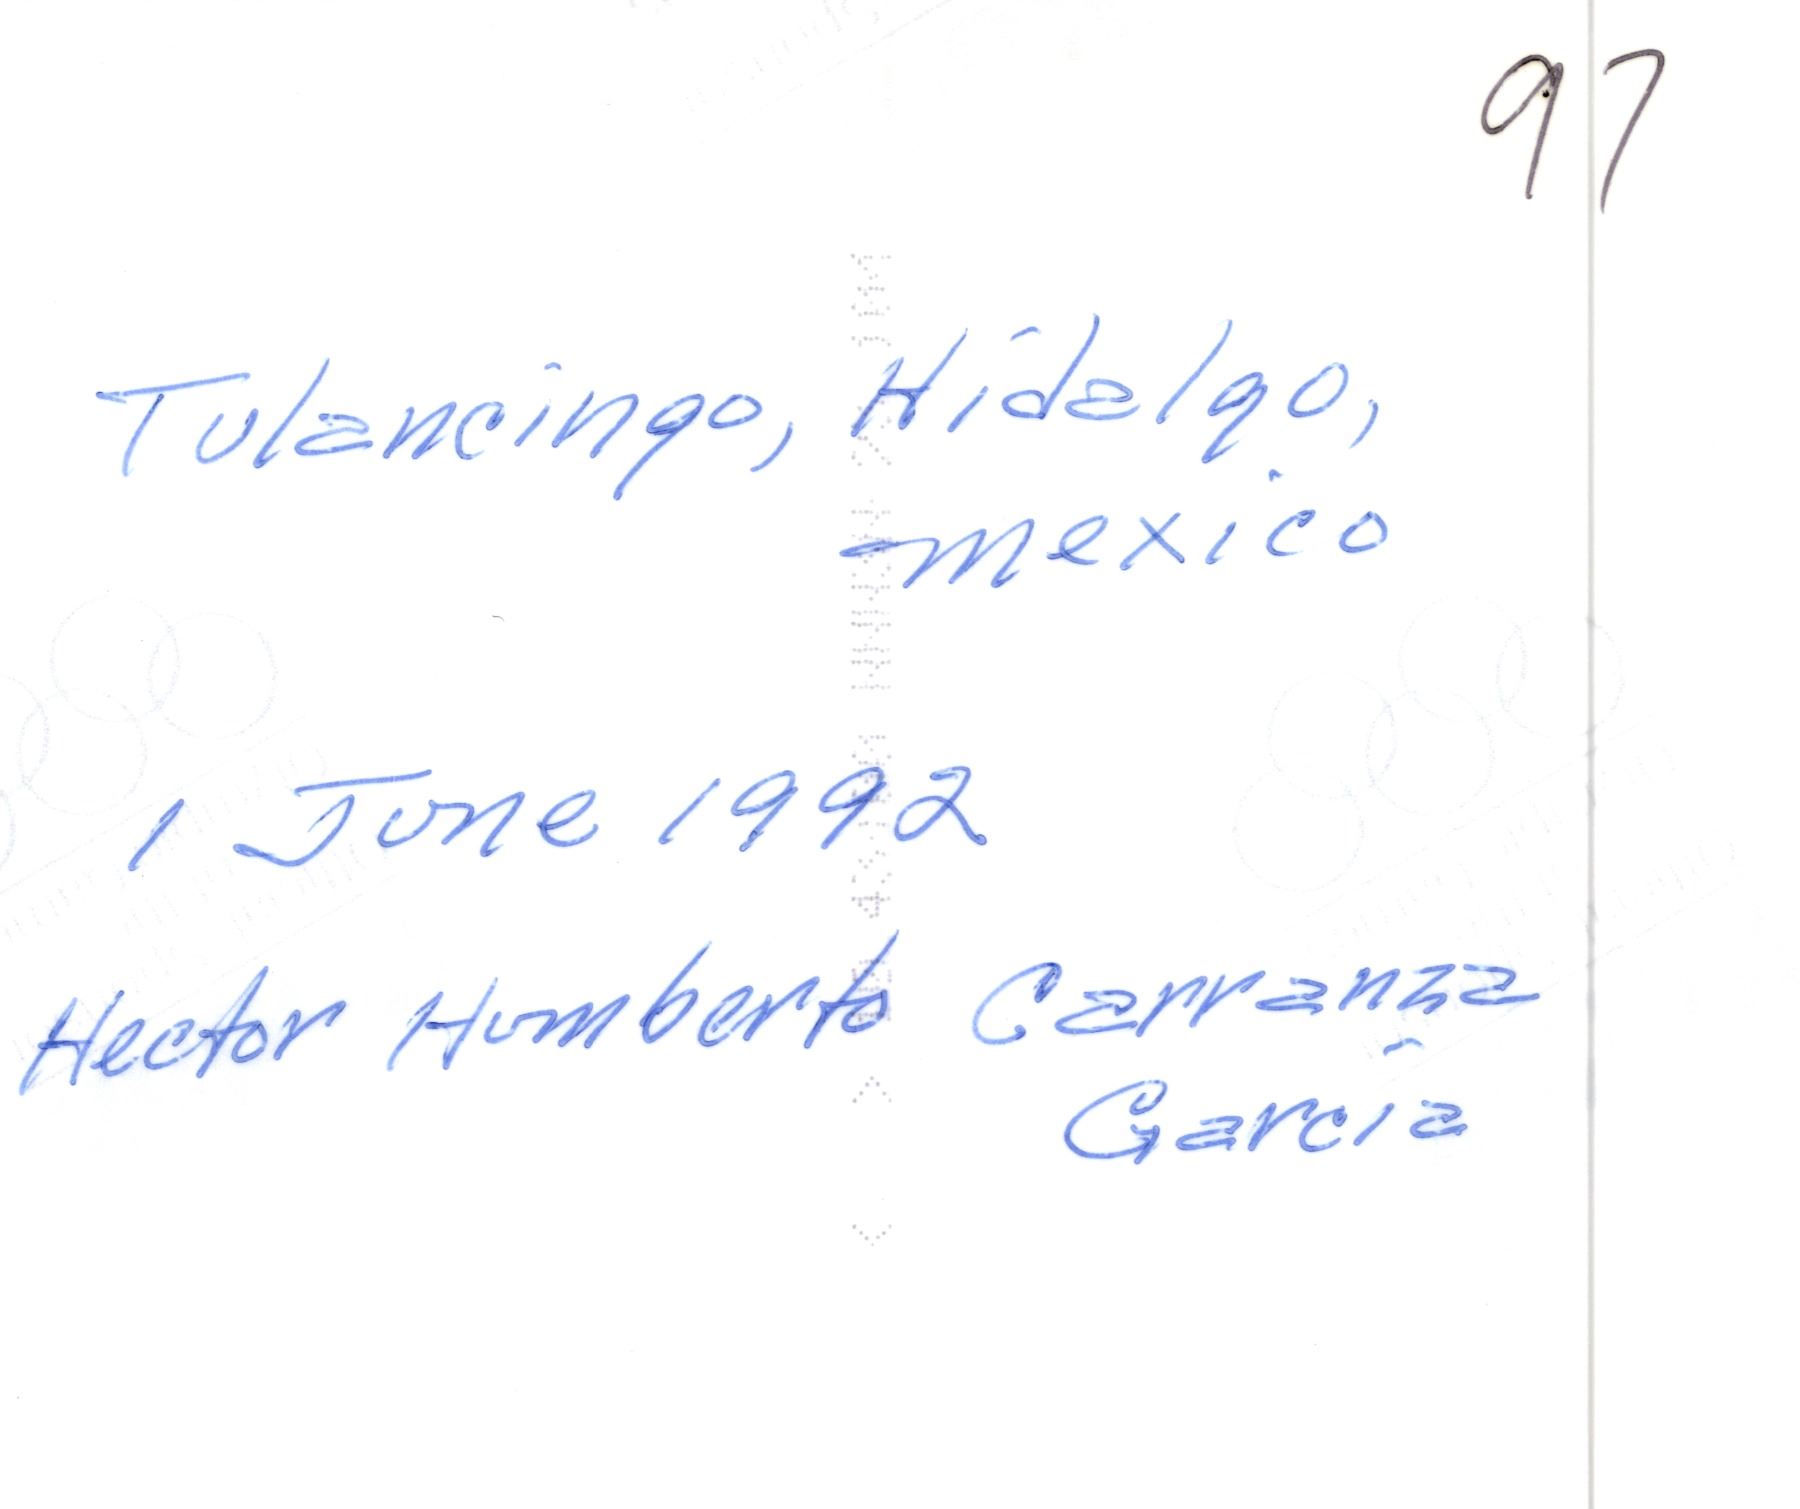 97
Tulancingo, Hidalgo,
Mexico
1 June 1992
Hector Humberto Carranza
García